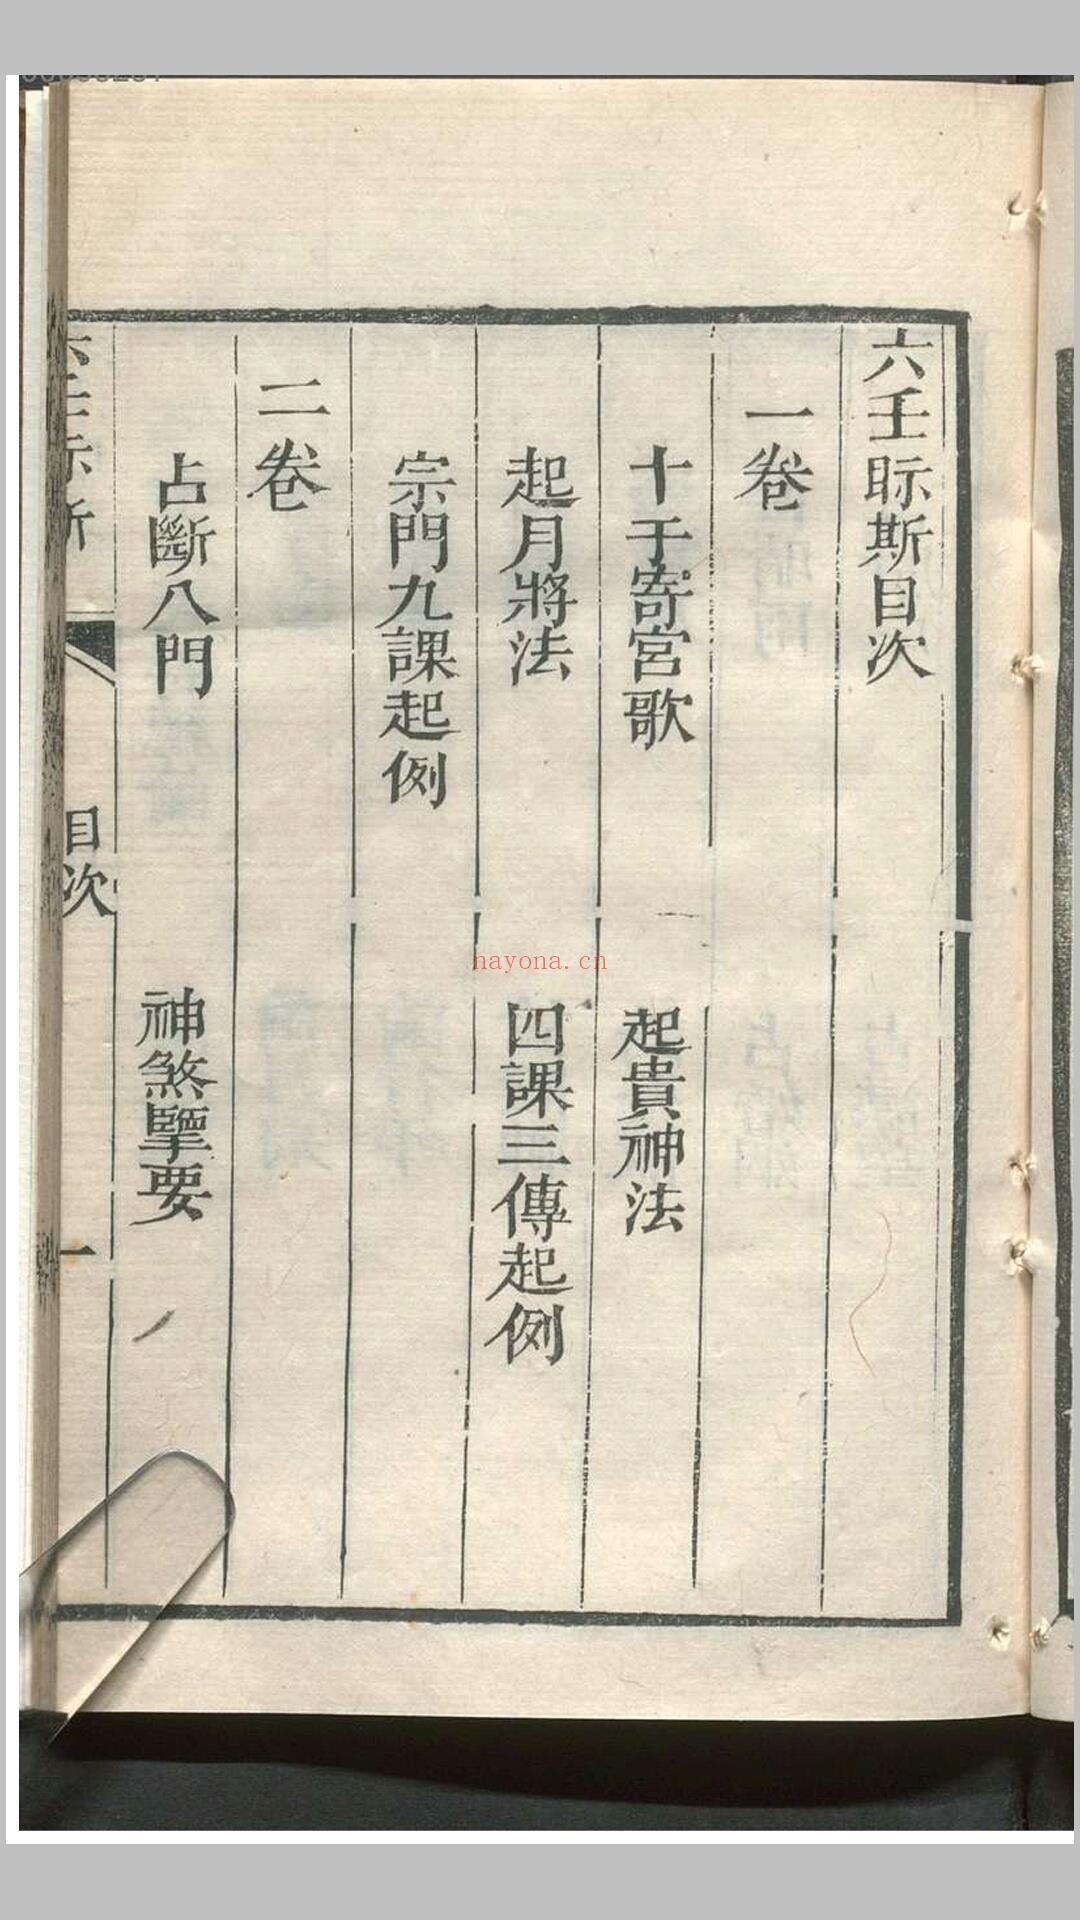 六壬眎斯目次
一卷
十干寄宮歌
起貴神法
起月將法
四課三傳起例
宗門九課起例
二卷
占斷八門
神煞擥要
目次
一
nayona.cn